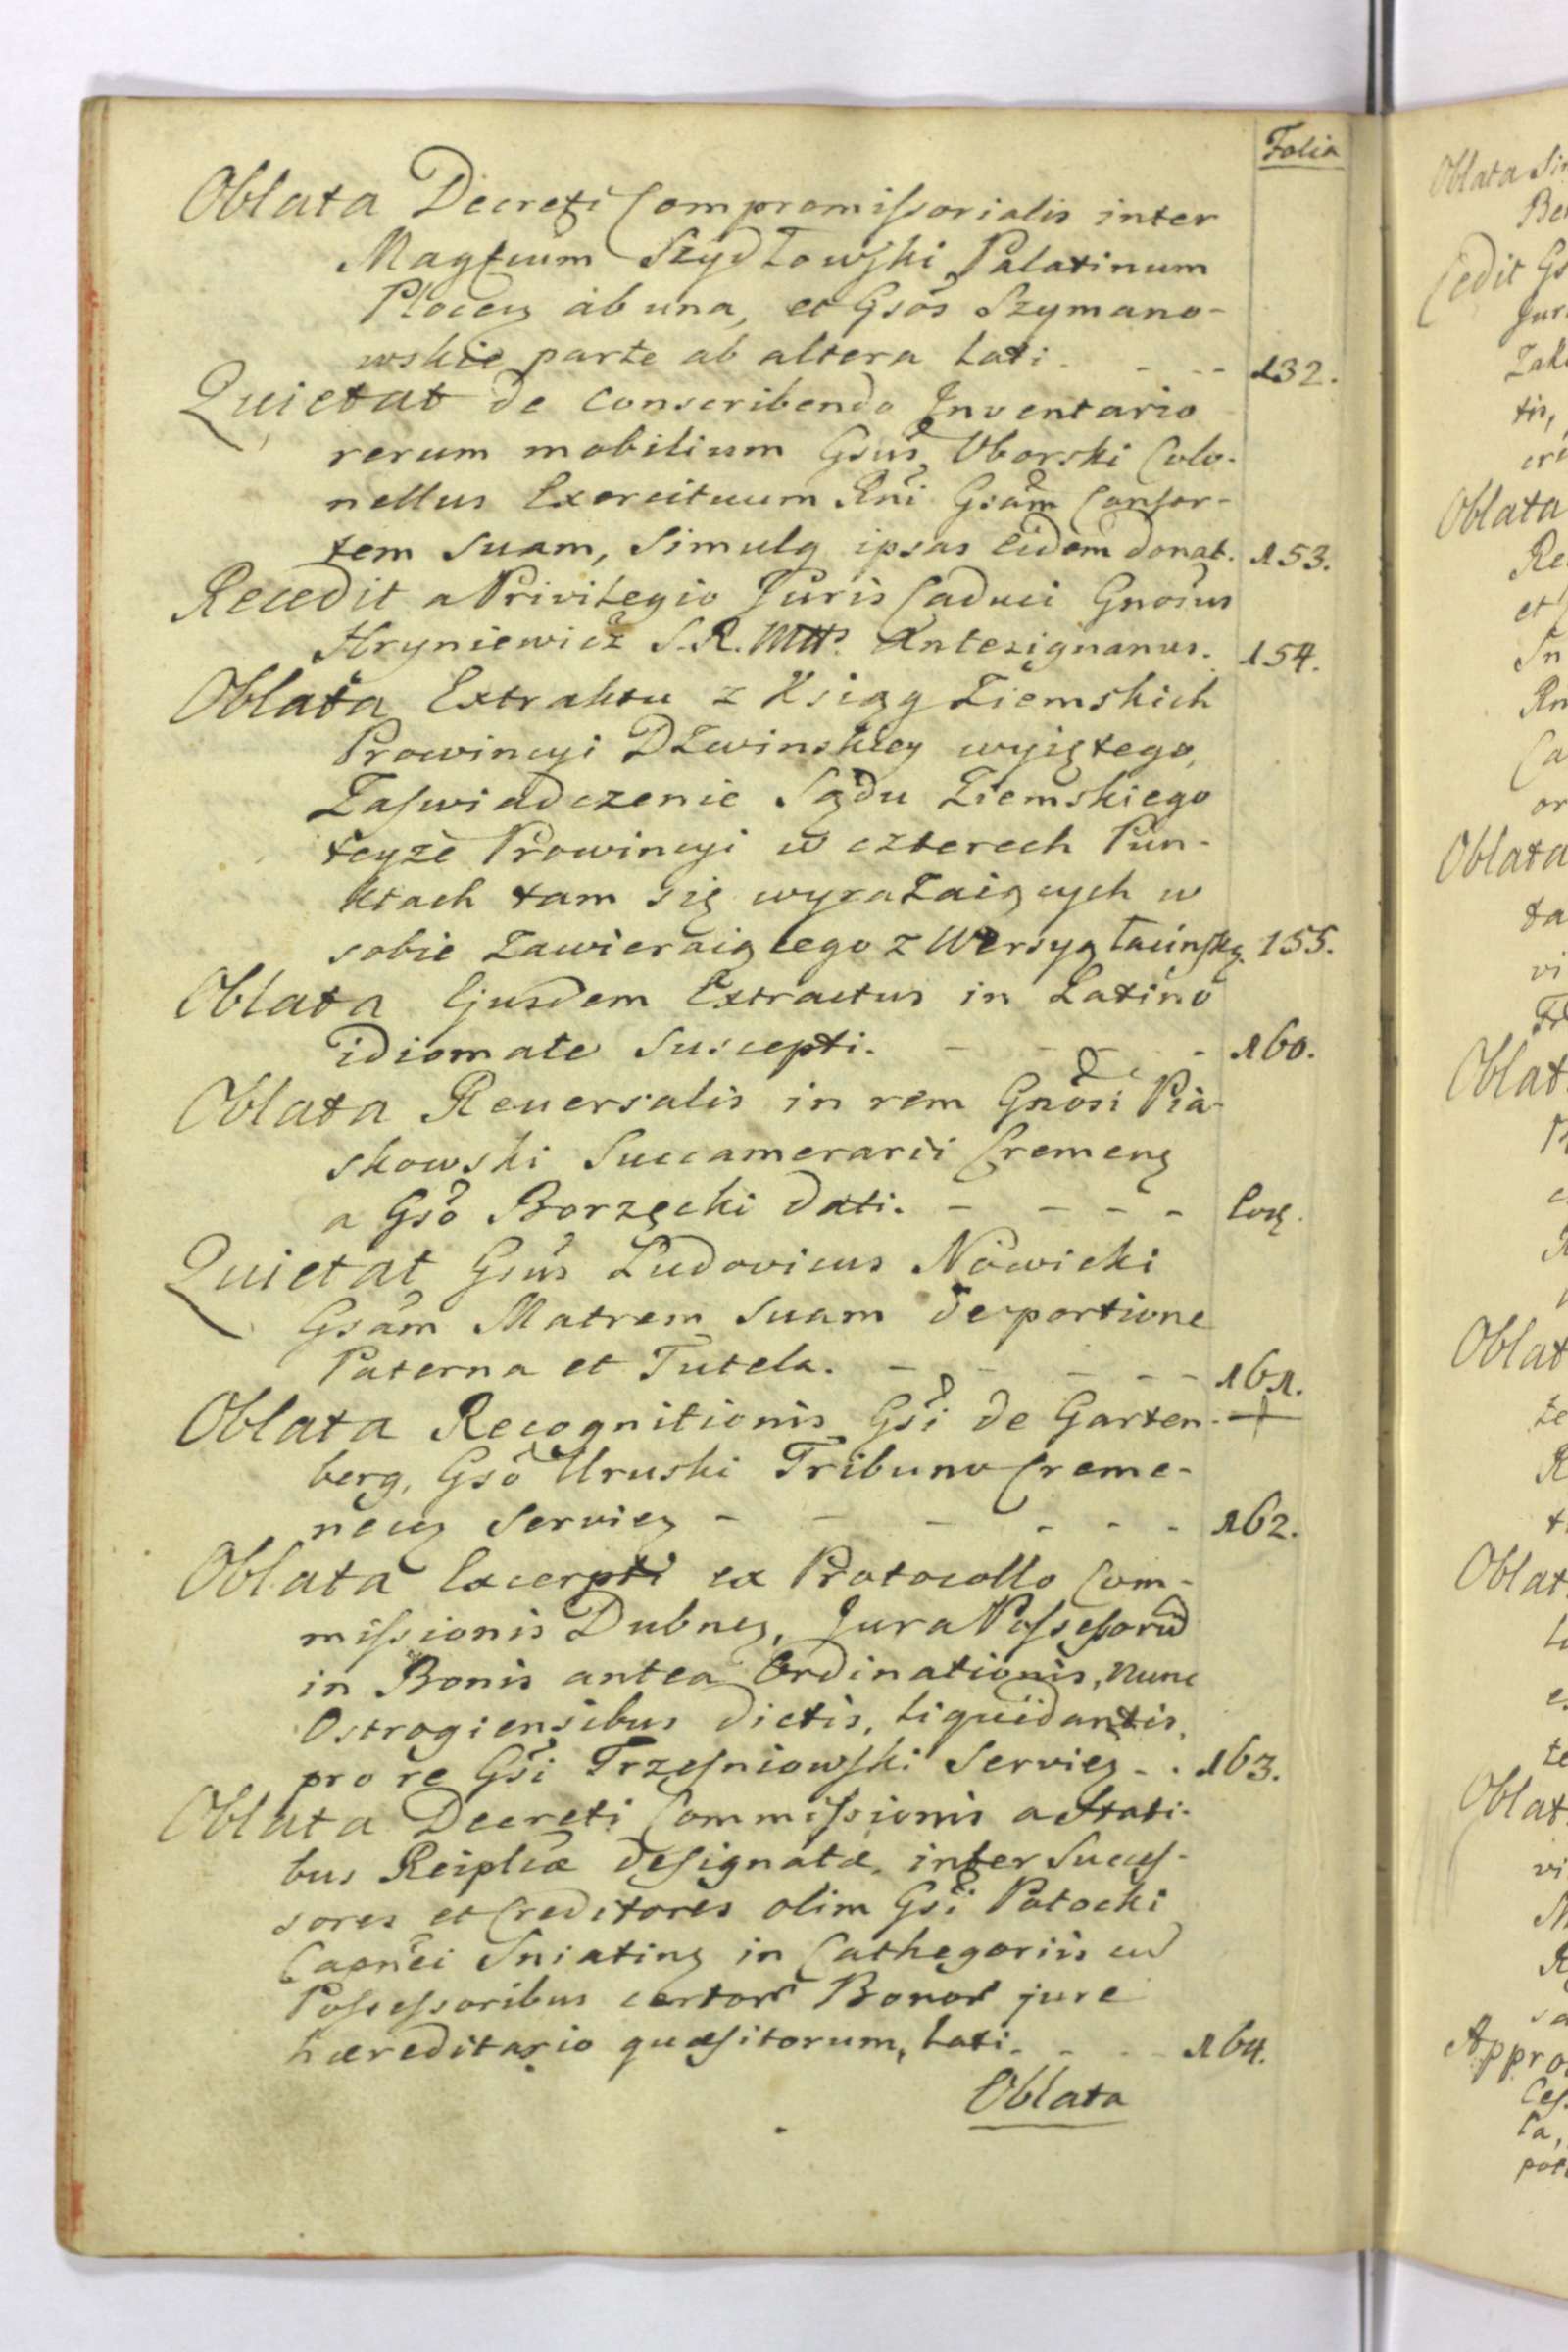 Folia
Oblata Decreti Compromissorialis inter
Magfcum Szydłowski Palatinum
Plocen ab una, et Gsos Szymano-
wskie parte ab altera lati. - - - 132.
Quietat de conscribendo Inventario
rerum mobilium Gsus Oborski Colo-
nellus Exercituum Rni Gsam Consor-
tem Suam, Simulq ipsas eidem donat. 153.
Recedit a Privilegio Juris Caduci Gnosus
Hryniewicz S.R. Mtts Antesignanus. 154.
Oblata Extraktu z Ksiąg Ziemskich
Prowincyi Dźwinskiey wyiętego,
Zaswiadczenie Sądu Ziemskiego
teyże Prowincyi w czterech Pun-
ktach tam się wyrażaiących w
sobie zawieraiącego z Wersyą łacinską. 155.
Oblata Ejusdem Extractus in Latino
idiomate Suscepti. - - - 160.
Oblata Reversalis in rem Gnosi Pia-
skowski Succamerarii Cremenę
a Gso Borzęcki dati. - - - - Eod.
Quietat Gsus Ludovicus Nowicki
Gsam Matrem Suam de portione
Paterna et Tutela. - - - - - 161.
Oblata Recognitionis Gsi de Garten-
berg, Gso Uruski Tribuno Creme-
necę Servieę - - - - - - 162.
Oblata Excerpti ex Protocollo Com-
missionis Dubneę, Jura Possessorũ
in Bonis antea Ordinationis, nunc
Ostrogiensibus dictis, liquidantis,
pro re Gsi Trzesniowski Servieę - . 163.
Oblata Decreti Commissionis a Stati-
bus Reiplicæ designatæ, inter Succes-
sores et Creditores olim Gsi Potocki
Capnei Sniatinę in Cathegoriis cũ
Possessoribus certor Bonor jure
hæreditario quæsitorum, lati. - - - 164.
Oblata